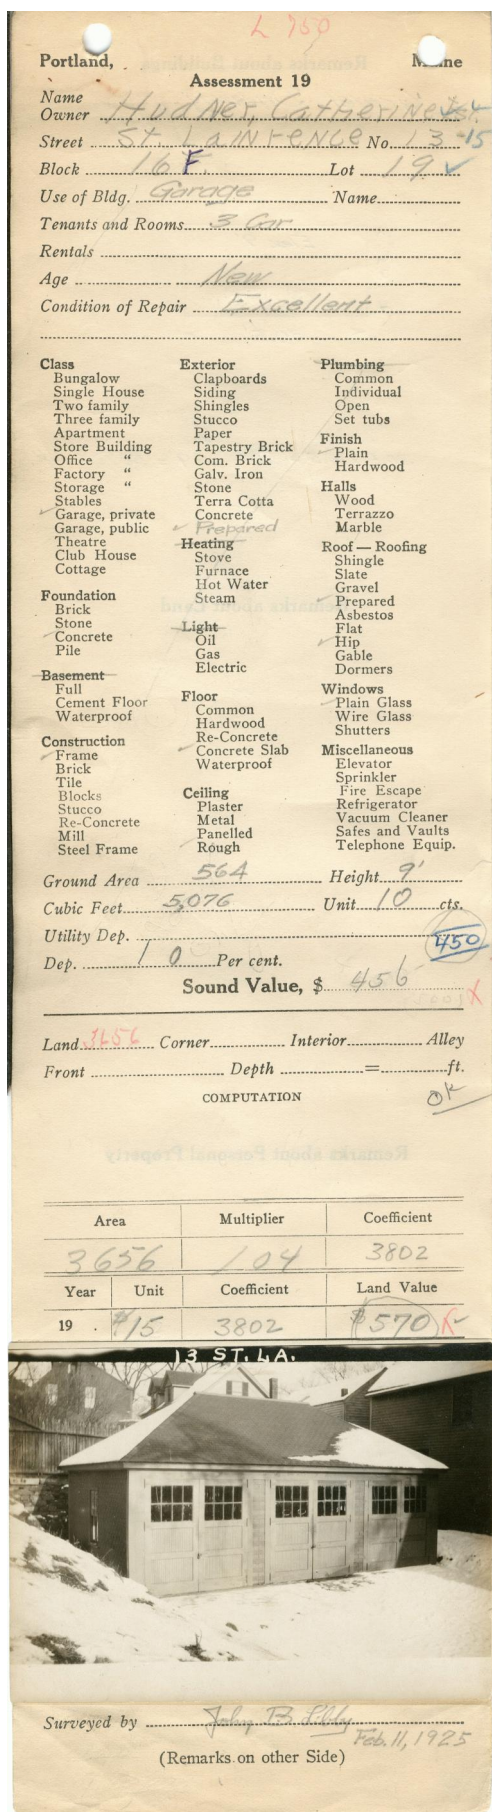 L 750
Portland, Maine
Assessment 19
Name
Owner Hudner, Catherine
Street St. Lawrence No. 13-15
Block 16F Lot 19 ✓
Use of Bldg. Garage Name
Tenants and Rooms 3 Car
Rentals
Age New
Condition of Repair Excellent
Class
Bungalow
Single House
Two family
Three family
Apartment
Store Building
Office "
Factory "
Storage "
Stables
✓ Garage, private
Garage, public
Theatre
Club House
Cottage
Foundation
Brick
Stone
✓ Concrete
Pile
Basement
Full
Cement Floor
Waterproof
Construction
✓ Frame
Brick
Tile
Blocks
Stucco
Re-Concrete
Mill
Steel Frame
Exterior
Clapboards
Siding
Shingles
Stucco
Paper
Tapestry Brick
Com. Brick
Galv. Iron
Stone
Terra Cotta
Concrete
✓ Prepared
Heating
Stove
Furnace
Hot Water
Steam
Light
Oil
Gas
Electric
Floor
Common
Hardwood
Re-Concrete
✓ Concrete Slab
Waterproof
Ceiling
Plaster
Metal
Panelled
✓ Rough
Plumbing
Common
Individual
Open
Set tubs
Finish
✓ Plain
Hardwood
Halls
Wood
Terrazzo
Marble
Roof — Roofing
Shingle
Slate
Gravel
✓ Prepared
Asbestos
Flat
✓ Hip
Gable
Dormers
Windows
✓ Plain Glass
Wire Glass
Shutters
Miscellaneous
Elevator
Sprinkler
Fire Escape
Refrigerator
Vacuum Cleaner
Safes and Vaults
Telephone Equip.
Ground Area 564 Height 9'
Cubic Feet 5,076 Unit 10 cts.
Utility Dep. 450
Dep. 10 Per cent.
Sound Value, $ 456 X
Land 3656 Corner Interior Alley
Front Depth = ft.
COMPUTATION OK
Area Multiplier Coefficient
3656 104 3802
Year Unit Coefficient Land Value
19 . $15 3802 $570
13 ST. LA.
Surveyed by John B Libby
Feb. 11, 1925
(Remarks on other Side)